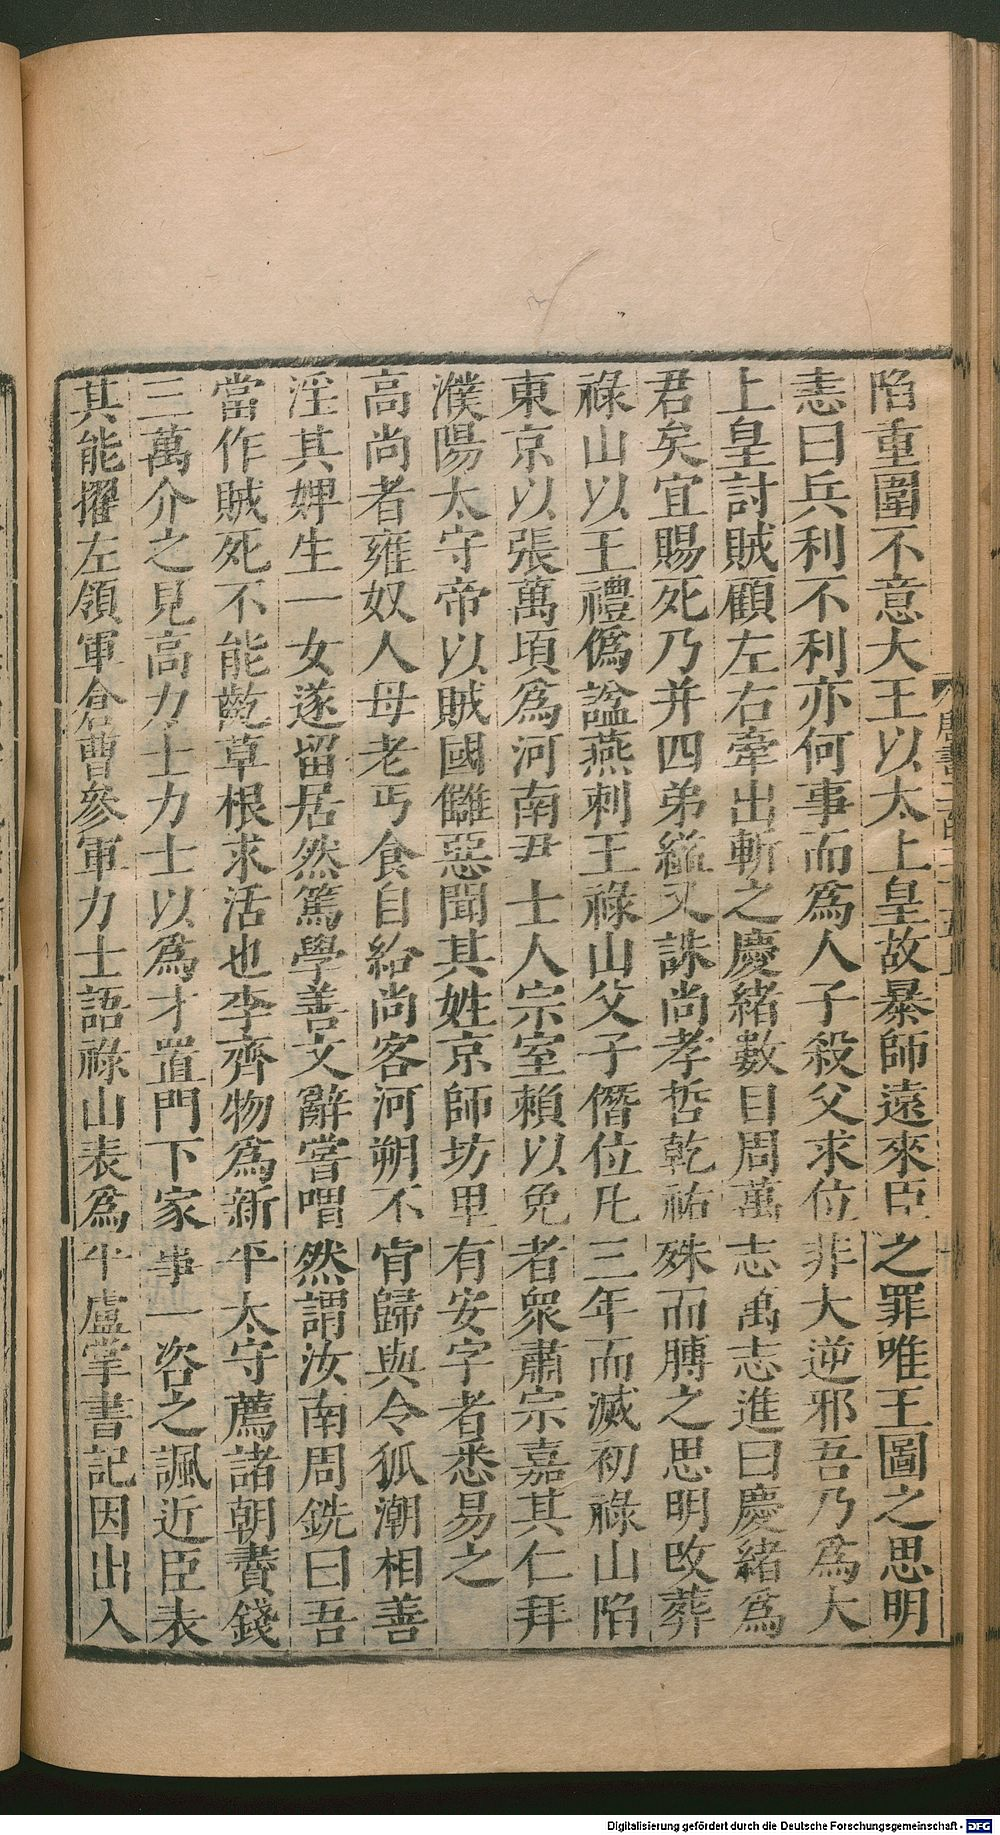 陷重圍不意大王以太上皇故暴師遠來臣之罪唯王圖之思明
恚曰兵利不利亦何事而爲人子殺父求位非大逆邪吾乃爲大
上皇討賊顧左右牽出斬之慶緒數目周萬志萬志進曰慶緒爲
君矣宜賜死乃并四弟縊又誅尚孝哲乾祐殊而膊之思明改葬
祿山以王禮僞諡燕剌王祿山父子僭位凡三年而滅初祿山陷
東京以張萬頃爲河南尹士人宗室賴以免者衆肅宗嘉其仁拜
濮陽太守帝以賊國讎惡聞其姓京師坊里有安字者悉易之
高尚者雍奴人母老丐食自給尚客河朔不肯歸與令狐潮相善
淫其婢生一女遂留居然篤學善文辭嘗喟然謂汝南周銑曰吾
當作賊死不能齕草根求活也李齊物爲新平太守薦諸朝賮錢
三萬介之見高力士力士以爲才置門下家事一咨之諷近臣表
其能擢左領軍倉曹參軍力士語祿山表爲平盧掌書記因出入
唐書二百二十五上
Digitalisierung gefördert durch die Deutsche Forschungsgemeinschaft - DFG